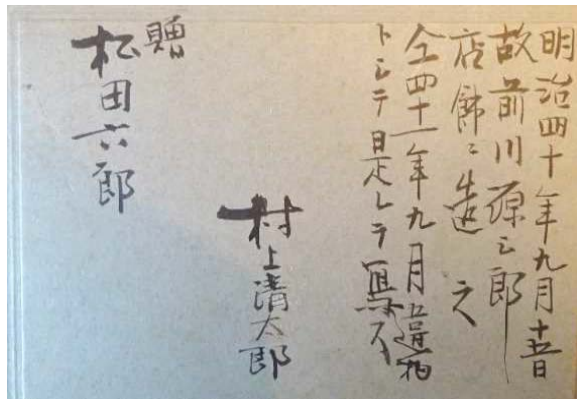 明治四十年九月十五日
故前川源三郎
店飾ニ造之
仝四十一年九月遺物
トシテ是レヲ寫ス
村上清太郎
贈
松田六郎